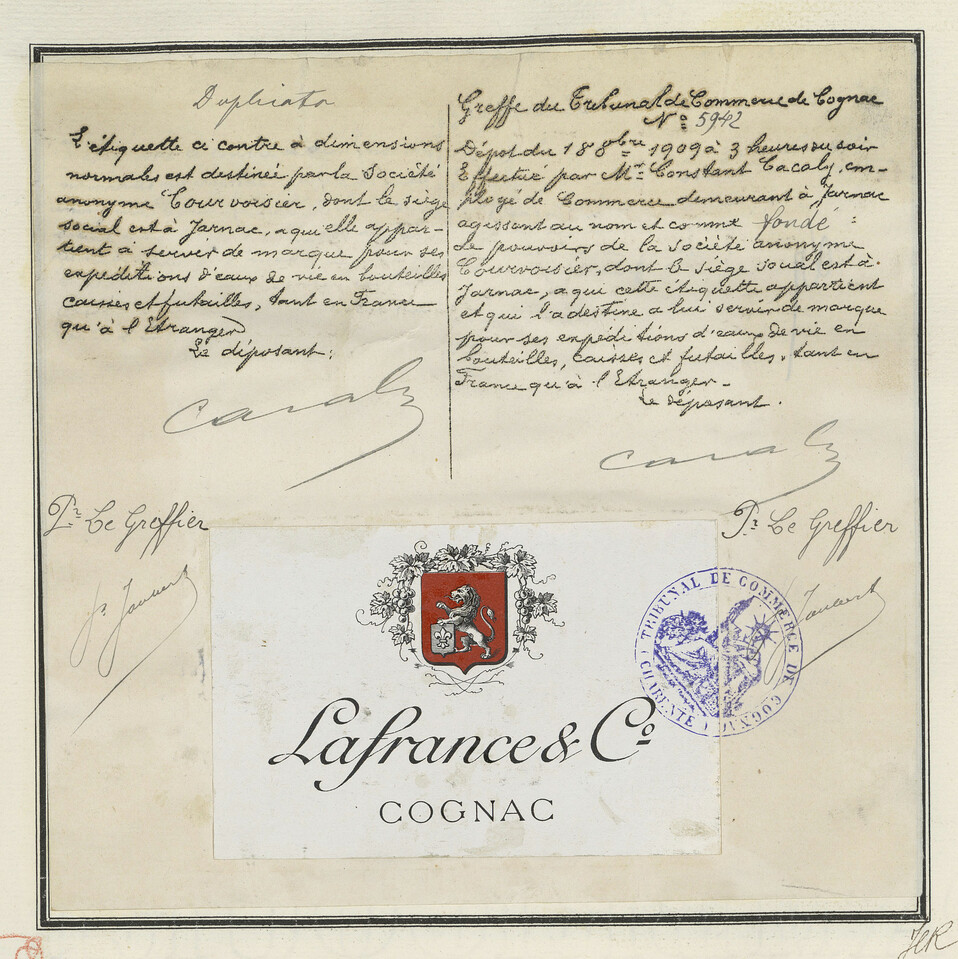 Duplicata
L'étiquette ci contre à dimensions
normales est destinée par la Société
anonyme Courvoisier, dont le siège
social est à Jarnac, a qu'elle appar-
tient à servir de marque pour ses
expéditions d'eaux de vie en bouteilles
caisses et futailles, tant en France
qu'à l'Etranger
Le déposant:
Pr Le Greffier
Greffe du Tribunal de Commerce de Cognac
No 5942
Dépot du 18 8bre 1909 à 3 heures du soir
Effectué par Mr Constant Cacaly, em-
ployé de Commerce demeurant à Jarnac
agissant au nom et comme fondé
de pouvoirs de la société anonyme
Courvoisier, dont le siège social est à
Jarnac, a qui cette étiquette appartient
et qui l'a destine a lui servir de marque
pour ses expéditions d'eaux de vie en
bouteilles, caisses et futailles, tant en
France qu'à l'Etranger-
Le déposant.
Pr Le Greffier
Lafrance & Co
COGNAC
TRIBUNAL DE COMMERCE DE COGNAC
CHARENTE